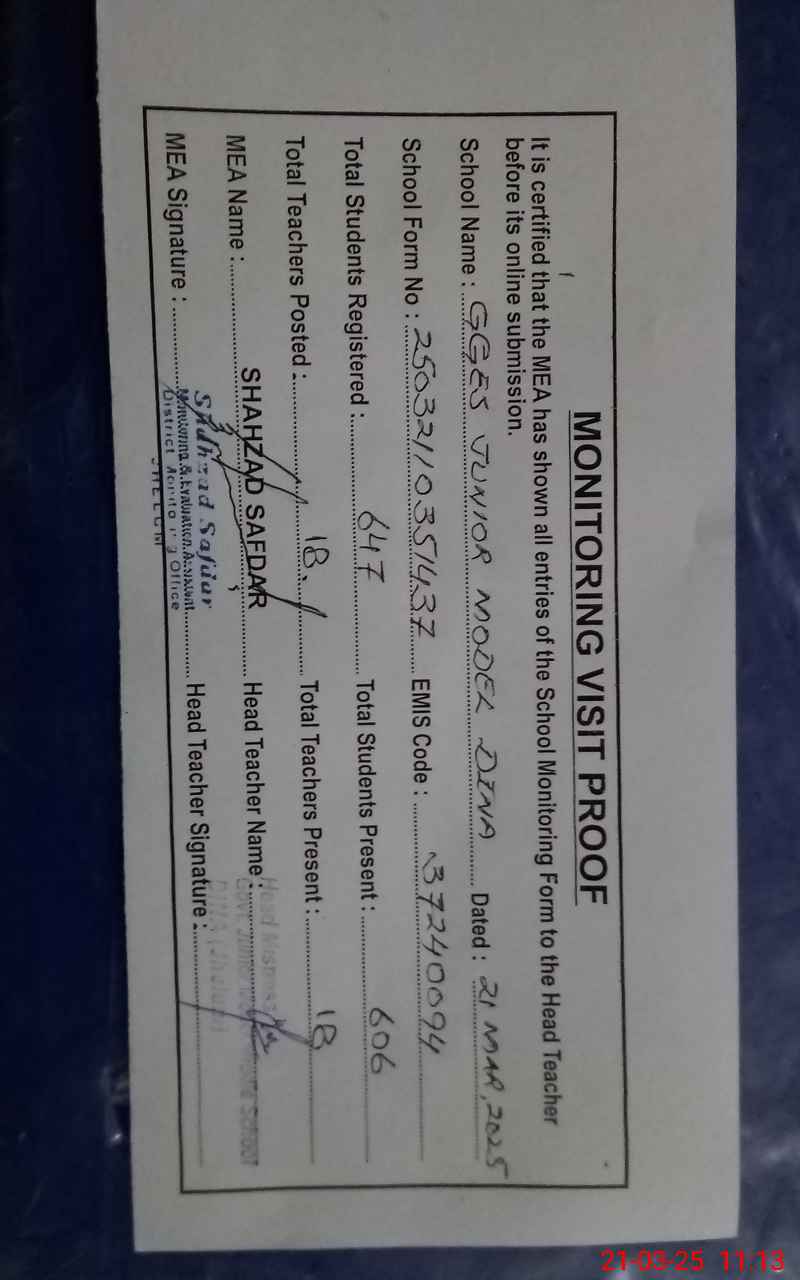 MONITORING VISIT PROOF
It is certified that the MEA has shown all entries of the School Monitoring Form to the Head Teacher
before its online submission.
School Name : GGES JUNIOR MODEL DINA Dated : 21 MAR, 2025
School Form No : 25032110351437 EMIS Code : 37240094
Total Students Registered : 647 Total Students Present : 606
Total Teachers Posted : 18 Total Teachers Present : 18
MEA Name : SHAHZAD SAFDAR Head Teacher Name :
MEA Signature : Head Teacher Signature :
Shahzad Safdar
Monitoring & Evaluation Assistant
District Monitoring Office
JHELUM
21-03-25 11:13